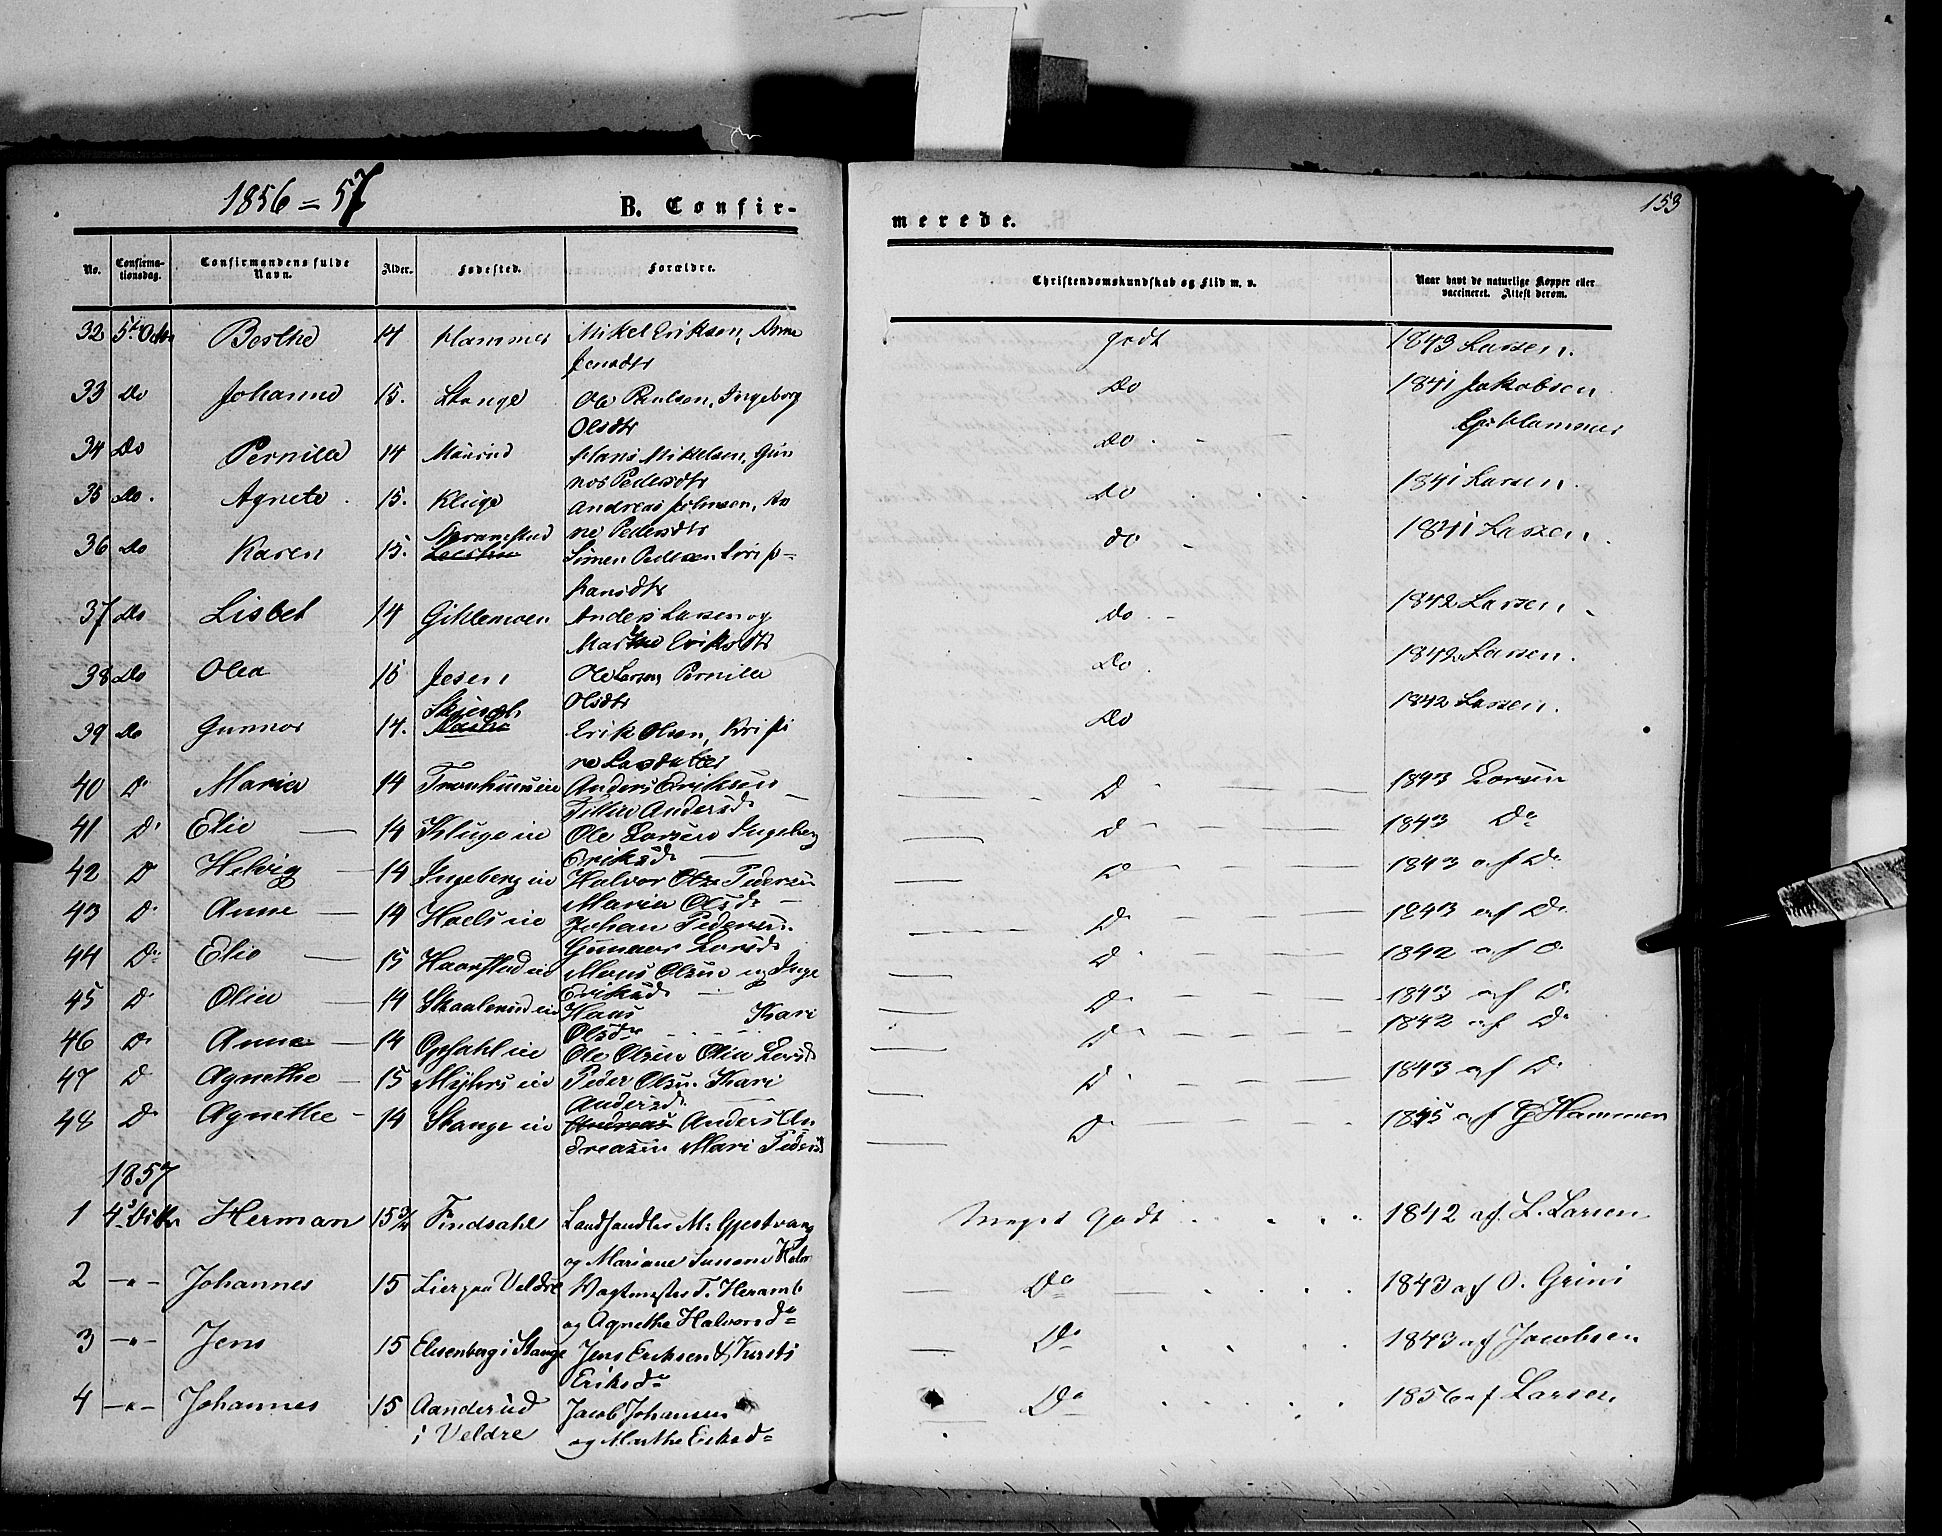 1856=57
B. Confir-
merede.
153
No. Confirma-tionsdag. Confirmandens fulde Navn. Alder. Fødested. Forældre. Christendomskundskab og Flid m. v. Naar havt de naturlige Kopper eller vaccineret. Attest derom.
32 5t Octbr Berthe 14 Hammer Mikel Eriksen, Anne godt 1843 Larsen.
Jensdtr
33 Do Johanne 15. Stange Ole Paulsen, Ingeborg Do 1841 Jakobsen
Olsdtr G. Hammer
34 Do Pernille 14 Hans Mikkelsen, Gun Do
nor Pedersdtr
35 Do. Agnete 15. Kluge Andreas Johnsen, An Do 1841 Larsen.
ne Pedersdtr
36 Do Karen 15. Simen Pedersen do 1841 Larsen.
37 Do Lisbet 14 Anders Larsen og Do 1842 Larsen
Marthe Eriksdtr
38 Do Olea 15 Jesen Ole Larsen, Pernille Do 1842 Larsen.
Olsdtr
39 Do Gunnor 14. Erik Olsen, Kristi Do 1842 Larsen.
ne Larsdatter
40 D. Maria 14 Anders Eriksen D 1843 Larsen
Andersd.
41 D. Elie 14 Kluge eie Ole Larsen Ingeberg D 1843 Do
Eriksd.
42 D Helvig 14 Ingeberg eie Halvor Pedersen D 1843 af D.
Maria Olsd.
43 D. Anne 14 Hoels eie Johan Pedersen. D. 1843 af D.
Gunner Larsd.
44 D. Elie 15 Haarstad eie Mons Olsen og Inge D. 1842 af D
Eriksd.
45 D. Olia 14 Skaalerud eie Hans Kari D. 1843 af D.
Olsdr
46 D. Anne 14 Opsahl eie Ole Olsen Olia Larsd. D. 1842 af D.
47 D. Agnethe 15 Myhrs eie Peder Olsen Kari D. 1843 af D.
Andersd.
48 D. Agnethe 14 Stange eie Anders An D. 1845 af G Hammer
dreasen Mari Pedersd
1857
1 4de Octbr Herman 15 3/4 Findsahl Landhandler M: Gjestvang Meget Godt 1842 af. L. Larsen
og Mariane Susane Halv
2 -"- Johannes 15 Lier paa Veldre Vagtmester T. Heramb Do 1843 af O. Grini
og Agnethe Halvorsd.
3 -"- Jens 15 Elisenberg i Stange Jens Eriksen & Kersti Do 1843 af Jacobsen
Eriksd.
4 -"- Johannes 15 Aanderud Jacob Johansen Do 1856 af Larsen
i Veldre og Marthe Eriksd.